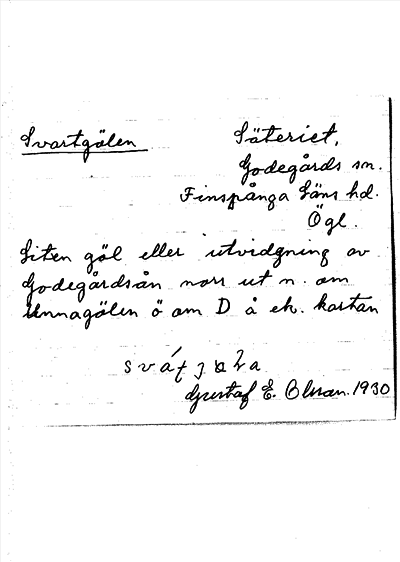 Svartgölen
Säteriet,
Godegårds sn.
Finspånga läns hd.
Ögl.
Liten göl eller utvidgning av
Godegårdsån norr ut n. om
Unnagölen ö om D å ek. kartan
Gustaf E. Olsson. 1930